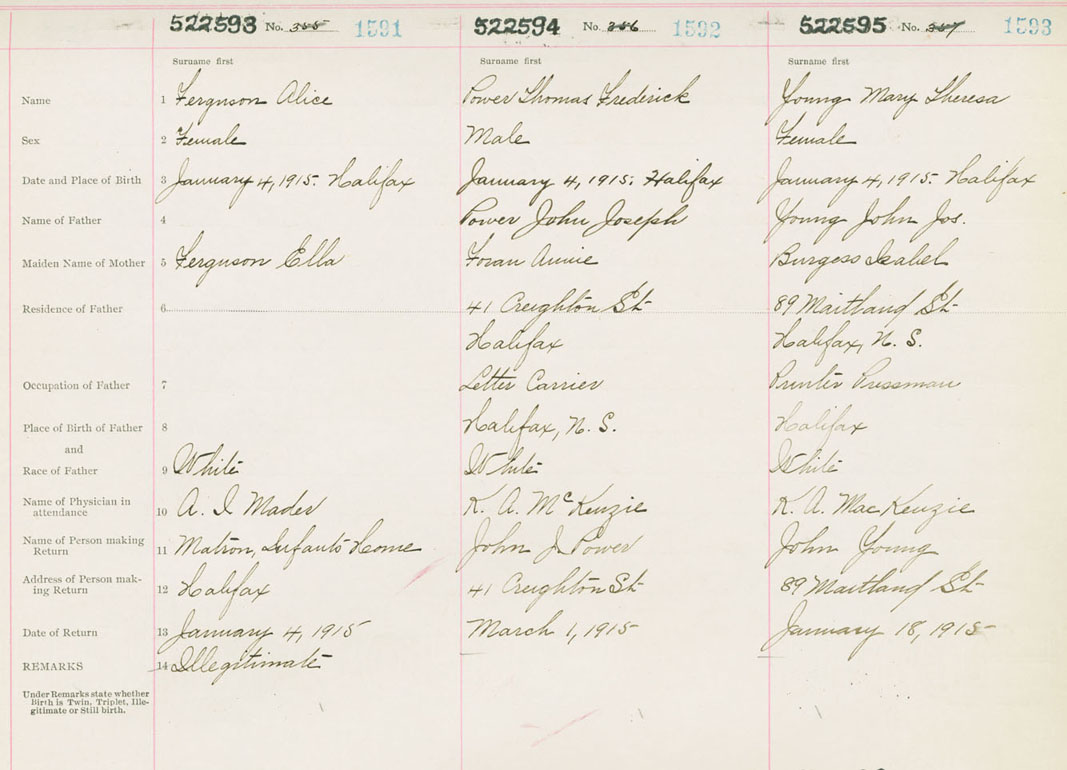 522593 No. 355 1591 522594 No. 356 1592 522595 No. 357 1593
Surname first Surname first Surname first
Name 1 Ferguson Alice Power Thomas Frederick Young Mary Theresa
Sex 2 Female Male Female
Date and Place of Birth 3 January 4, 1915. Halifax January 4, 1915. Halifax January 4, 1915. Halifax
Name of Father 4 Power John Joseph Young John Jos.
Maiden Name of Mother 5 Ferguson Ella Foran Annie Burgess Isabel
Residence of Father 6 41 Creighton St 89 Maitland St
Halifax Halifax, N. S.
Occupation of Father 7 Letter Carrier Printer Pressman
Place of Birth of Father 8 Halifax, N. S. Halifax
and
Race of Father 9 White White White
Name of Physician in
attendance 10 A. I Mader K. A. McKenzie K. A. MacKenzie
Name of Person making
Return 11 Matron, Infants Home John J Power John Young
Address of Person mak-
ing Return 12 Halifax 41 Creighton St 89 Maitland St
Date of Return 13 January 4, 1915 March 1, 1915 January 18, 1915
REMARKS 14 Illegitimate
Under Remarks state whether
Birth is Twin, Triplet, Ille-
gitimate or Still birth.